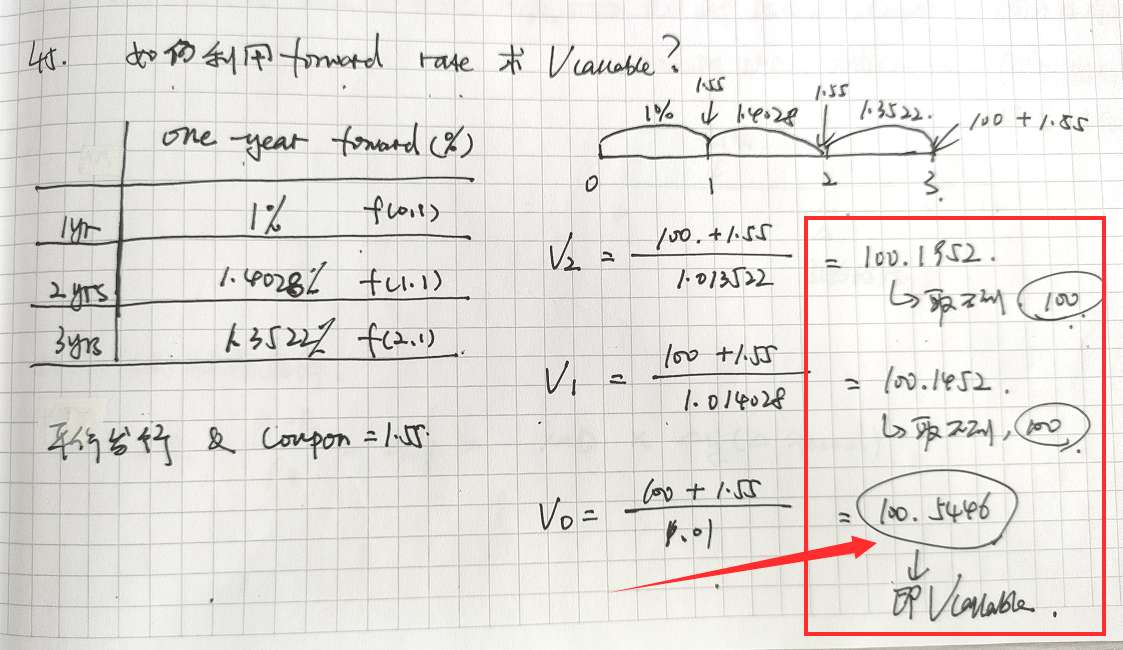 45. 如何利用 forward rate 求 Vcallable?
one-year forward (%)
1yr 1% f(0,1)
2yrs 1.4028% f(1,1)
3yrs 1.3522% f(2,1)
平价发行 & Coupon = 1.55.
1% 1.55 1.4028 1.55 1.3522. 100 + 1.55
0 1 2 3.
V2 = 100. + 1.55 / 1.013522 = 100.1952.
↳ 取不到 100
V1 = 100 + 1.55 / 1.014028 = 100.1452.
↳ 取不到, 100
V0 = 100 + 1.55 / 1.01 = 100.5446
↓
即 Vcallable.